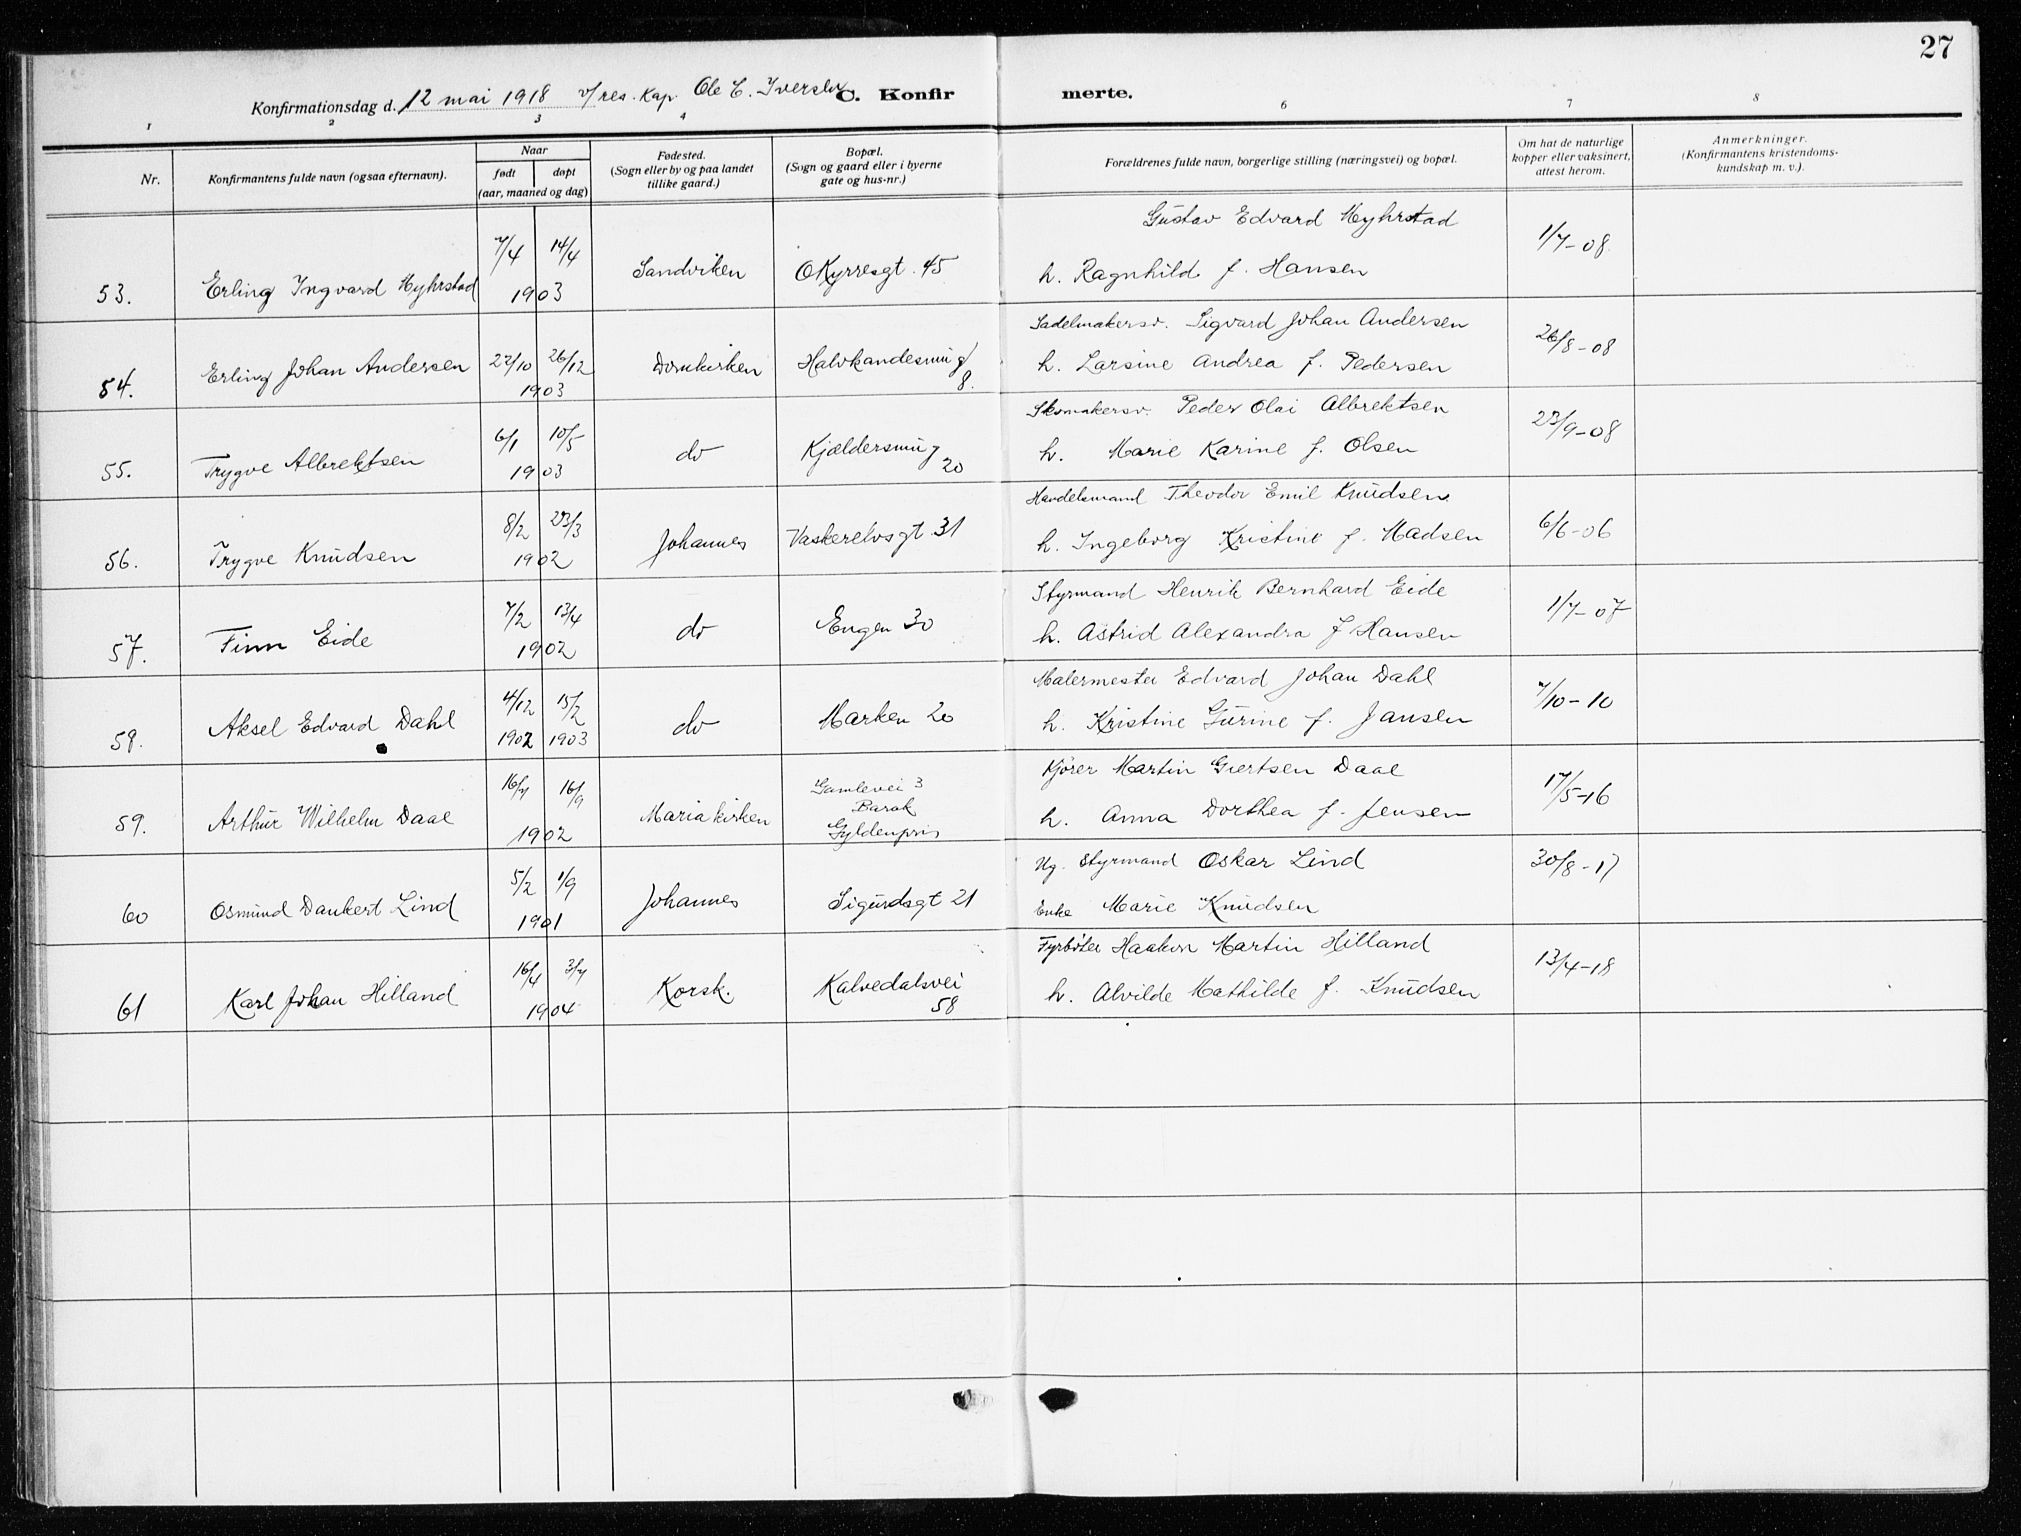 27
Konfirmationsdag d. 12 mai 1918 v/ res. Kap. Ole E. Iversen C. Konfirmerte.
1 2 3 4 6 7 8
Nr.
Konfirmantens fulde navn (ogsaa efternavn).
Naar
født døpt
(aar, maaned og dag)
Fødested.
(Sogn eller by og paa landet
tillike gaard.)
Bopæl.
(Sogn og gaard eller i byerne
gate og hus-nr.)
Forældrenes fulde navn, borgerlige stilling (næringsvei) og bopæl.
Om hat de naturlige
kopper eller vaksinert,
attest herom.
Anmerkninger.
(Konfirmantens kristendoms-
kundskap m. v.).
Gustav Edvard Myhrstad
53. Erling Ingvard Myhrstad 7/4 14/4 1903 Sandviken O Kyrresgt. 45 h. Ragnhild f. Hansen 1/7-08
Sadelmakersv. Sigvard Johan Andersen
54. Erling Johan Andersen 27/10 26/12 1903 Domkirken Halvkandesmug 8. h. Larsine Andrea f. Pedersen 26/8-08
Skomakersv. Peder Olai Albrektsen
55. Trygve Albrektsen 6/1 10/5 1903 do Kjældersmug 20 h. Marie Karine f. Olsen 23/9-08
Handelsmand Theodor Emil Knudsen
56. Trygve Knudsen 8/2 23/3 1902 Johannes Vaskerelvsgt 31 h. Ingeborg Kristine f. Madsen 6/6-06
Styrmand Henrik Bernhard Eide
57. Finn Eide 7/2 13/4 1902 do Engen 30 h. Astrid Alexandra f Hansen 1/7-07
Malermester Edvard Johan Dahl
58. Aksel Edvard Dahl 4/12 1902 15/2 1903 do Marken 20 h. Kristine Gurine f. Jansen 7/10-10
Kjører Martin Giertsen Daae
59. Arthur Wilhelm Daae 16/7 16/9 1902 Mariakirken Gamlevei 3 Barak Gyldenpris h. Anna Dorthea f. Jensen 17/5-16
Ug. Styrmand Oskar Lind
60 Osmund Dankert Lind 5/2 1/9 1901 Johannes Sigurdsgt 21 Enke Marie Knudsen 30/8-17
Fyrbøter Haakon Martin Hilland
61 Karl Johan Hilland 16/4 3/7 1904 Korsk. Kalvedalsvei 58 h. Alvilde Mathilde f. Knudsen 13/4-18